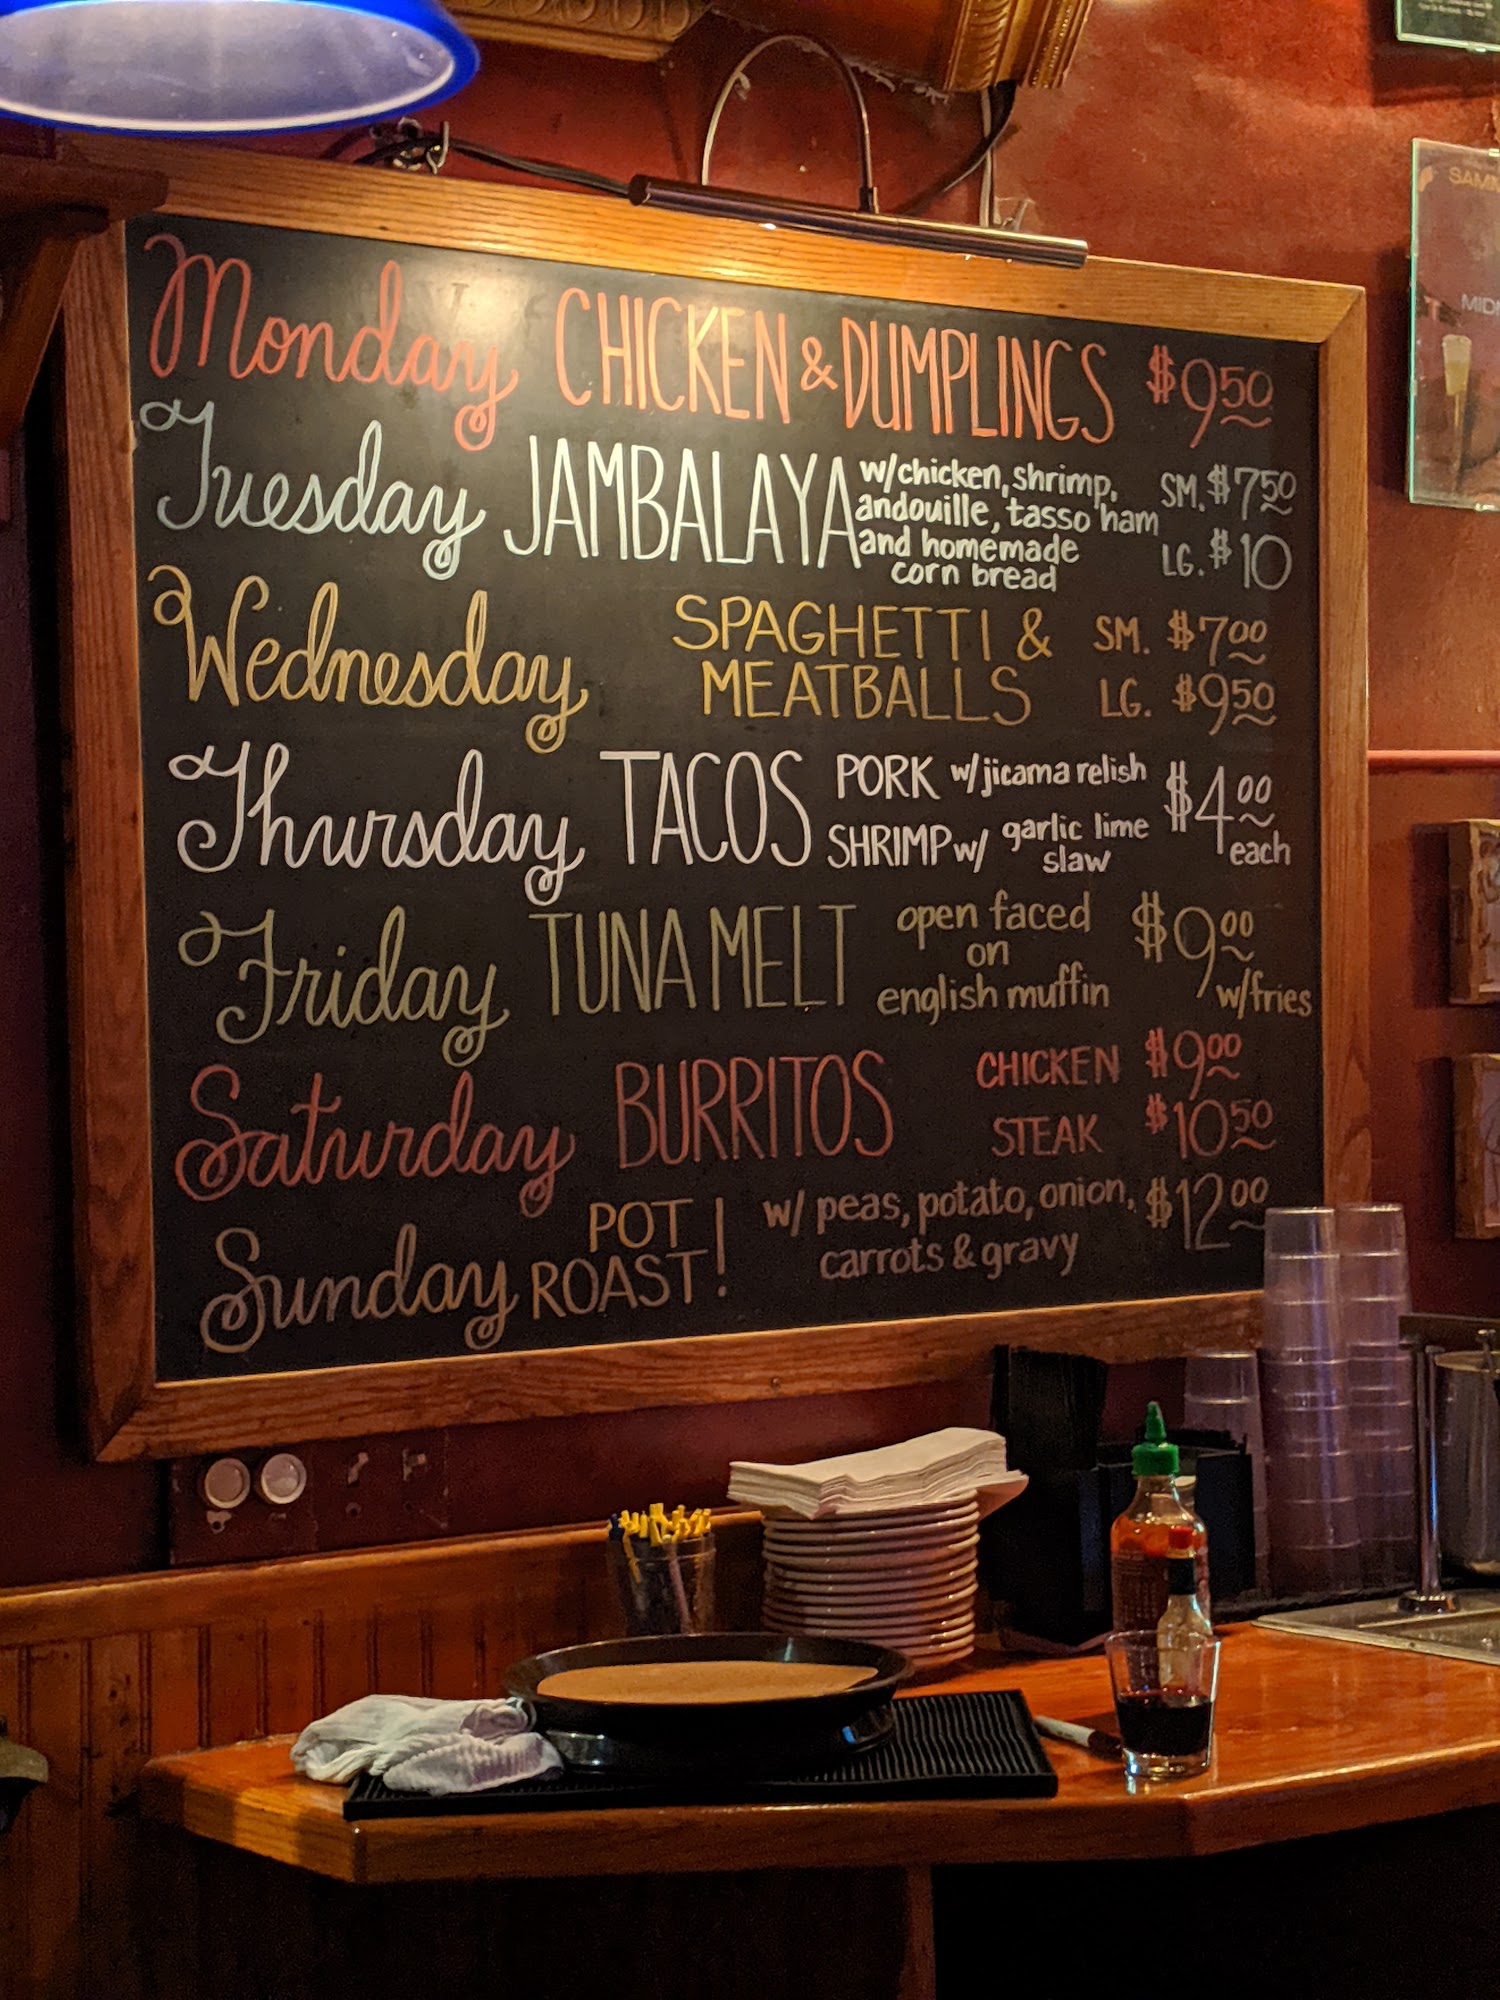 Monday CHICKEN & DUMPLINGS $950
Tuesday JAMBALAYA w/chicken, shrimp, andouille, tasso ham and homemade corn bread SM. $750 LG. $10
Wednesday SPAGHETTI & MEATBALLS SM. $700 LG. $950
Thursday TACOS PORK w/jicama relish SHRIMP w/ garlic lime slaw $400 each
Friday TUNA MELT open faced on english muffin $900 w/fries
Saturday BURRITOS CHICKEN $900 STEAK $1050
Sunday POT ROAST! w/ peas, potato, onion, carrots & gravy $1200